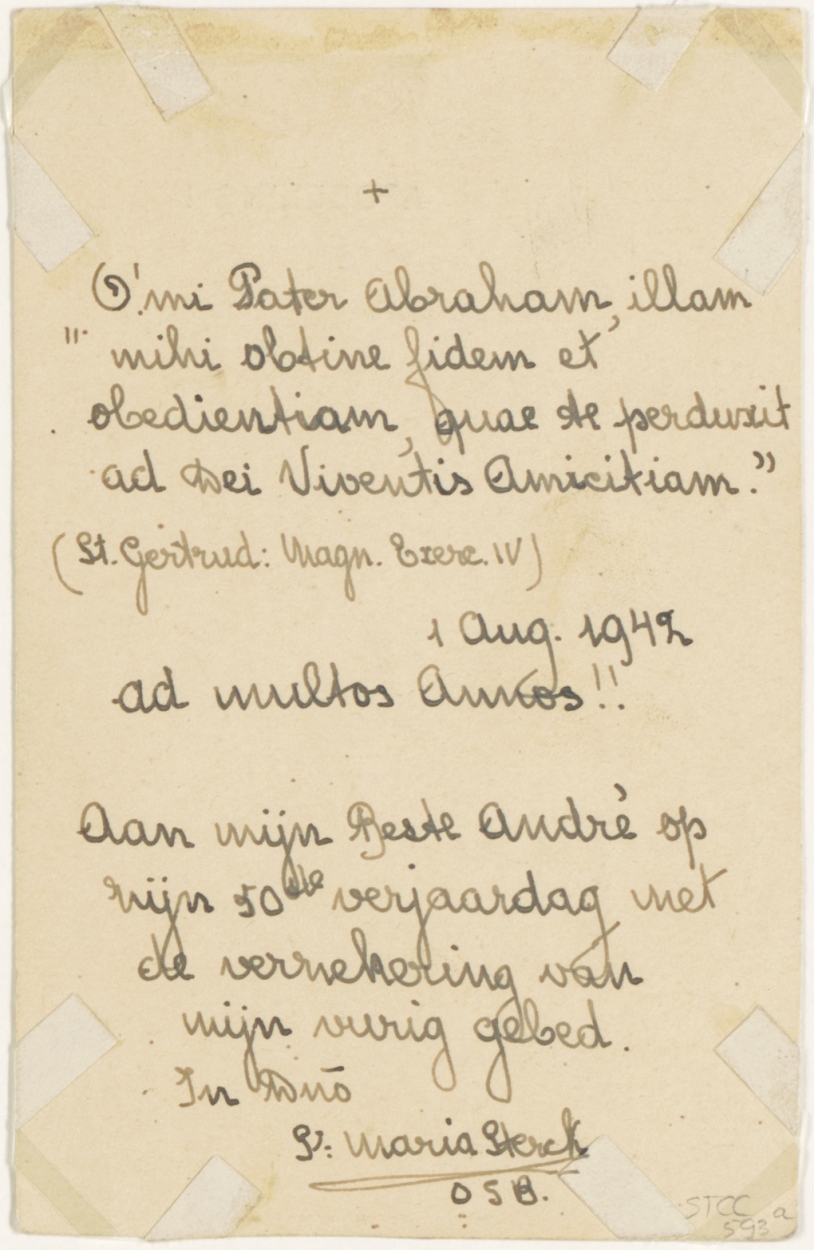 +
O! mi Pater Abraham, illam
"" mihi obtine fidem et
obedientiam, quae te perduxit
ad Dei Viventis Amicitiam."
(St. Gertrud: Magn. Exerc. IV)
1 Aug. 1942
ad multos Annos!!
Aan mijn Beste André op
zijn 50ste verjaardag met
de verzekering van
mijn vurig gebed.
In Dnō
Sr. Maria Sterck
OSB.
STCC a
593